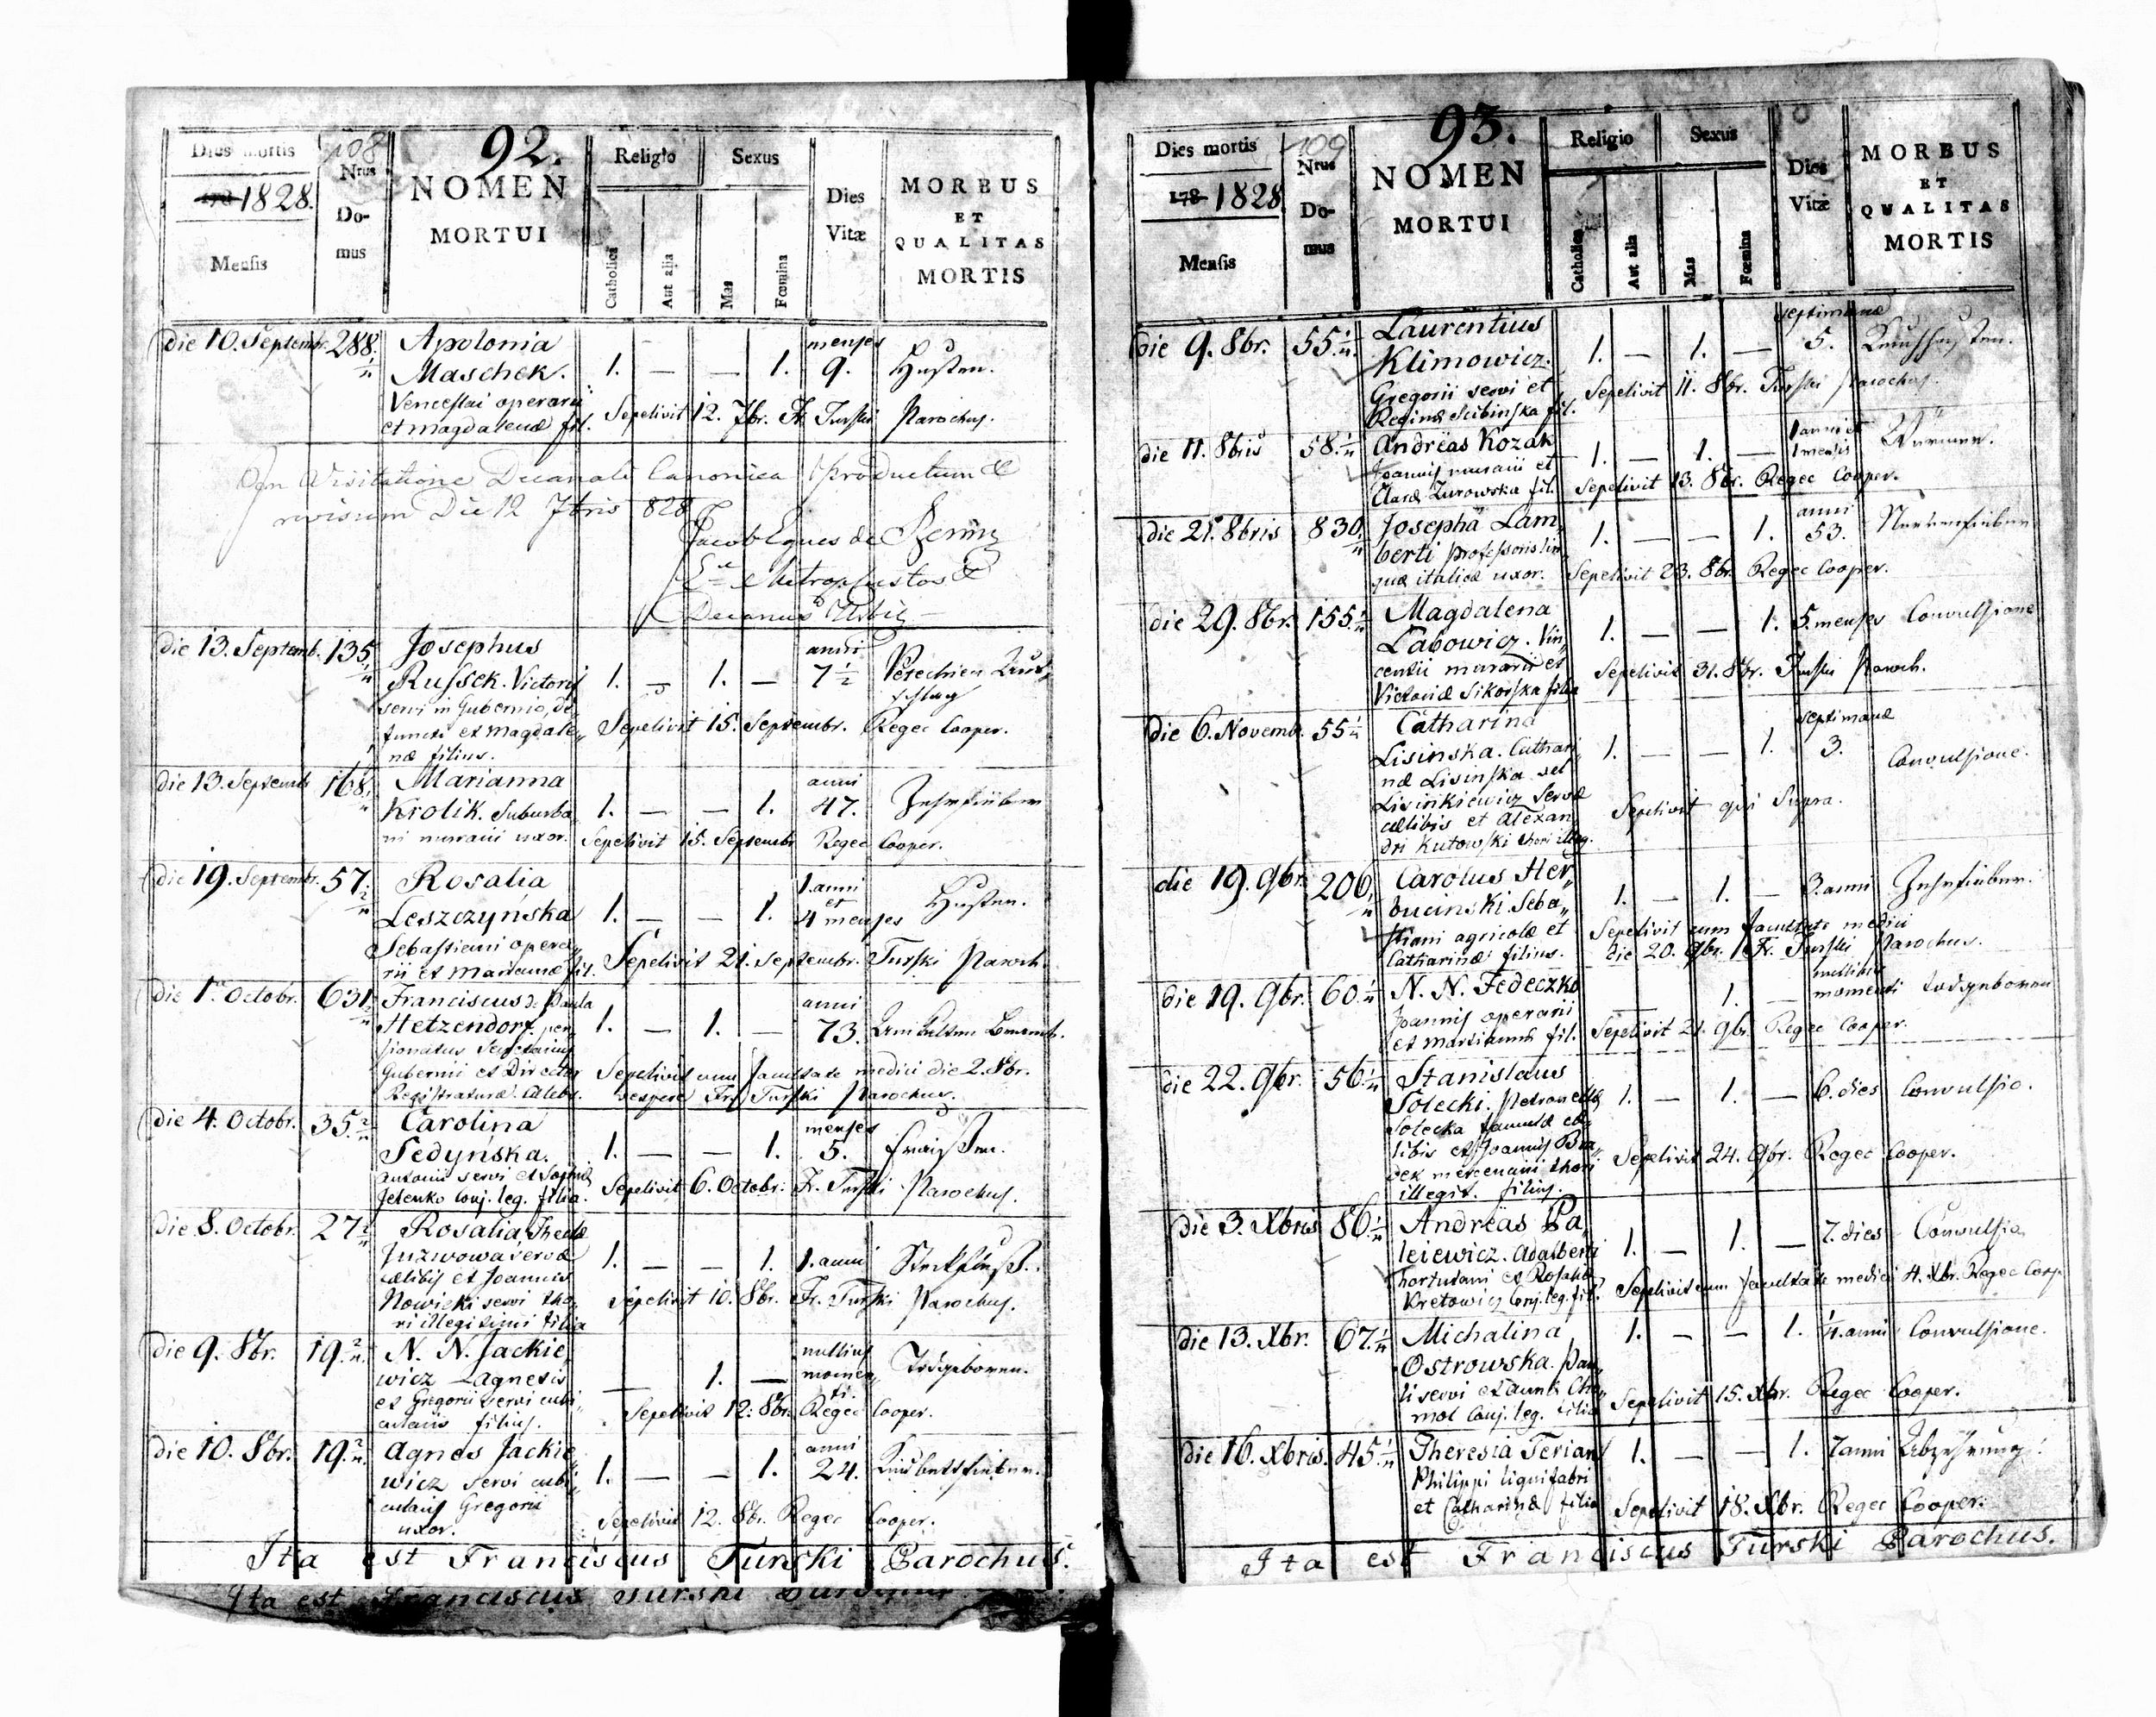 92.
108
Dies mortis
1828.
Mensis
Nrus
Do-
mus
NOMEN
MORTUI
Religio
Catholica
Aut alia
Sexus
Mas
Fœmina
Dies
Vitæ
MORBUS
ET
QUALITAS
MORTIS
die 10. Septembr. 288. Apolonia menses
Maschek. 1. — — 1. 9. Husten.
Venceslai operarii
et Magdalenæ fil. Sepelivit 12. 7br. Fr. Turski Parochus.
In Visitatione Decanali Canonica productum &
revisum Die 12 7bris 828
Jacob Eques de
Decanus
die 13. Septemb. 135 Josephus anni
Russek. Victoris 1. — 1. — 7½
servi in Gubernio, de schlag
functi et Magdale„ Sepelivit 15. Septembr. Regec Cooper.
næ filius.
die 13. Septemb 168. Marianna anni
Krolik. Suburba 1. — — 1. 47. Zehrfieber
ni murarii uxor. Sepelivit 15. Septembr Regec Cooper.
die 19. Septembr. 57. Rosalia 1. anni
et
Leszczyńska 1. — — 1. 4 menses Husten.
Sebastiani opera„
rii et Mariannæ fil. Sepelivit 21. Septembr. Turski Paroch.
die 1. Octobr. 631. Franciscus de Paula anni
Hetzendorf. pen„ 1. — 1. — 73.
sionatus Secretarius
Gubernii et Director Sepelivit cum facultate medici die 2. 8br.
Registraturæ. Cælebs. vespere Fr. Turski Parochus.
die 4. Octobr. 35. Carolina menses
Sedyńska. 1. — — 1. 5. Fraisen.
Antonii servi et Sophiæ
Jelenko Conj. leg. filia. Sepelivit 6. Octobr. Fr. Turski Parochus.
die 8. Octobr. 27 Rosalia, Theclæ
Juzwowa servæ 1. — — 1. 1. anni Steckfluß.
cælibis et Joannis
Nowicki servi tho„ Sepelivit 10. 8br. Fr. Turski Parochus.
ri illegitimi filia
die 9. 8br. 19. N. N. Jackie„ nullius
wicz Agnetis — 1. — momen„ Todgeboren.
et Gregorii servi cubi„ ti.
cularis filius. Sepelivit 12. 8br. Regec Cooper.
die 10. 8br. 19. Agnes Jackie„ anni
wicz servi cubi„ 1. — — 1. 24. Kindbettfieber.
cularis Gregorii
uxor. Sepelivit 12. 8br. Regec Cooper.
Ita est Franciscus Turski Parochus.
Ita est Franciscus Turski Parochus.
93.
109
Dies mortis
1828
Mensis
Nrus
Do-
mus
NOMEN
MORTUI
Religio
Catholica
Aut alia
Sexus
Mas
Fœmina
Dies
Vitæ
MORBUS
ET
QUALITAS
MORTIS
die 9. 8br. 55. Laurentius septimanæ
Klimowicz. 1. — 1. — 5. Keuchhusten.
Gregorii servi et Sepelivit 11. 8br. Turski Parochus.
Reginæ Scibinska fil.
die 11. 8bris 58. Andreas Kozak 1 anni et
Joannis murarii et 1. — 1. — 1 mensis Würmer.
Claræ Zurowska fil. Sepelivit 13. 8br. Regec Cooper.
die 21. 8bris 830 Josepha Lam„ anni
berti professoris lin„ 1. — — 1. 53. Nervenfieber
guæ italicæ uxor. Sepelivit 23. 8br. Regec Cooper.
die 29. 8br. 155. Magdalena
Labowicz. Vin„ 1. — — 1. 5. menses Convulsione
centii murarii et
Victoriæ Sikorska filia Sepelivit 31. 8br. Turski Paroch.
die 6. Novemb. 55 Catharina septimanæ
Lisinska. Cathari„ 1. — — 1. 3. Convulsione.
næ Lisinska vel
Lisinkiewicz servæ
cælibis et Alexan„ Sepelivit qui Supra.
dri Kutowski thori illeg.
die 19. 9br. 206. Carolus Her„
bucinski. Seba„ 1. — 1. — 3. anni Zehrfieber.
stiani agricolæ et Sepelivit cum facultate medici
Catharinæ filius. die 20. 9br. Fr. Turski Parochus.
die 19. 9br. 60. N. N. Fedeczko nullius
Joannis operarii — 1. — momenti todgeboren
et Mariannæ fil. Sepelivit 21. 9br. Regec Cooper.
die 22. 9br. 56. Stanislaus
Solecki. Petronellæ 1. — 1. — 6. dies Convulsio.
Solecka famulæ cæ„
libis et Joannis Bra„
dek mercenarii thori Sepelivit 24. 9br. Regec Cooper.
illegit. filius.
die 3. Xbris 86. Andreas Pa„
leiewicz. Adalberti 1. — 1. — 7. dies Convulsio
hortulani et Rosaliæ
Kretowicz Conj. leg. fil. Sepelivit cum facultate medici 4. Xbr. Regec Coop.
die 13. Xbr. 67. Michalina 1. — — 1. ¼ anni Convulsione.
Ostrowska. Pau„
li servi et Annæ Cho„
mol Conj. leg. filia Sepelivit 15. Xbr. Regec Cooper.
die 16. Xbris. 45. Theresia Terian 1. — — 1. 7 anni Abzehrung.
Philippi lignifabri
et Catharinæ filia Sepelivit 18. Xbr. Regec Cooper.
Ita est Franciscus Turski Parochus.